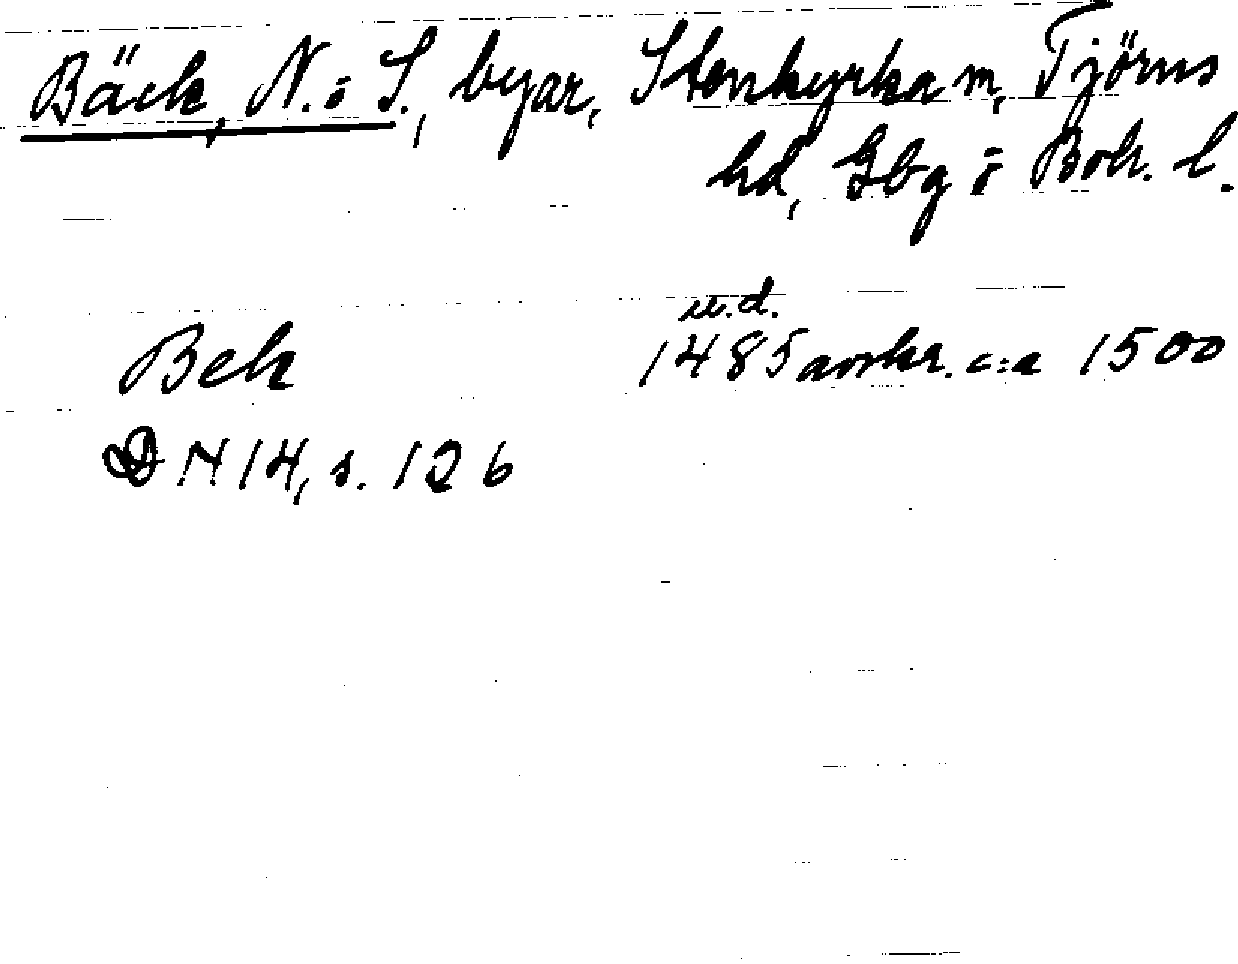 Bäck, N. o S., byar, Stenkyrka sn, Tjörns
hd, Gbg o Boh. l.
u.d.
Bek 1485 avskr. c:a 1500
DN 14, s. 126